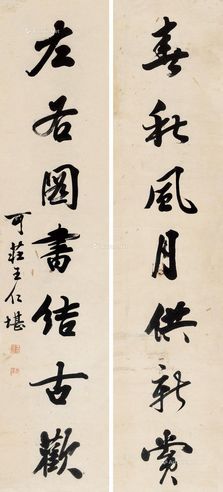 春秋風月供新賞
左右圖書結古歡
可莊王仁堪